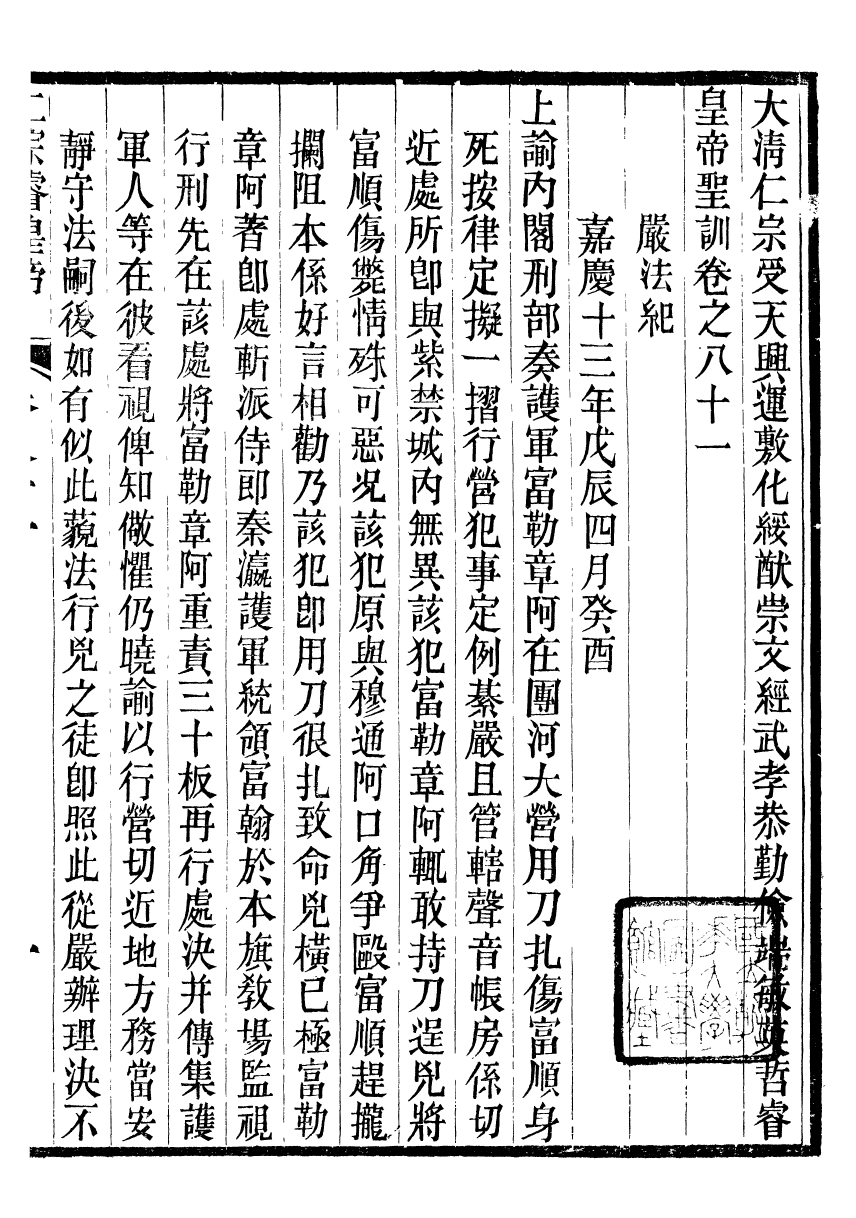 大淸仁宗受天興運敷化綏猷崇文經武孝恭勤儉端敏英哲睿
皇帝聖訓卷之八十一
嚴法紀
嘉慶十三年戊辰四月癸酉
上諭內閣刑部奏護軍富勒章阿在團河大營用刀扎傷富順身
死按律定擬一摺行營犯事定例綦嚴且管轄聲音帳房係切
近處所卽與紫禁城內無異該犯富勒章阿輒敢持刀逞兇將
富順傷斃情殊可惡况該犯原與穆通阿口角爭毆富順趕攏
攔阻本係好言相勸乃該犯卽用刀很扎致命兇橫已極富勒
章阿著卽處斬派侍郎秦瀛護軍統領富翰於本旗敎場監視
行刑先在該處將富勒章阿重責三十板再行處決并傳集護
軍人等在彼看視俾知儆懼仍曉諭以行營切近地方務當安
靜守法嗣後如有似此藐法行兇之徒卽照此從嚴辦理決不
仁宗睿皇帝